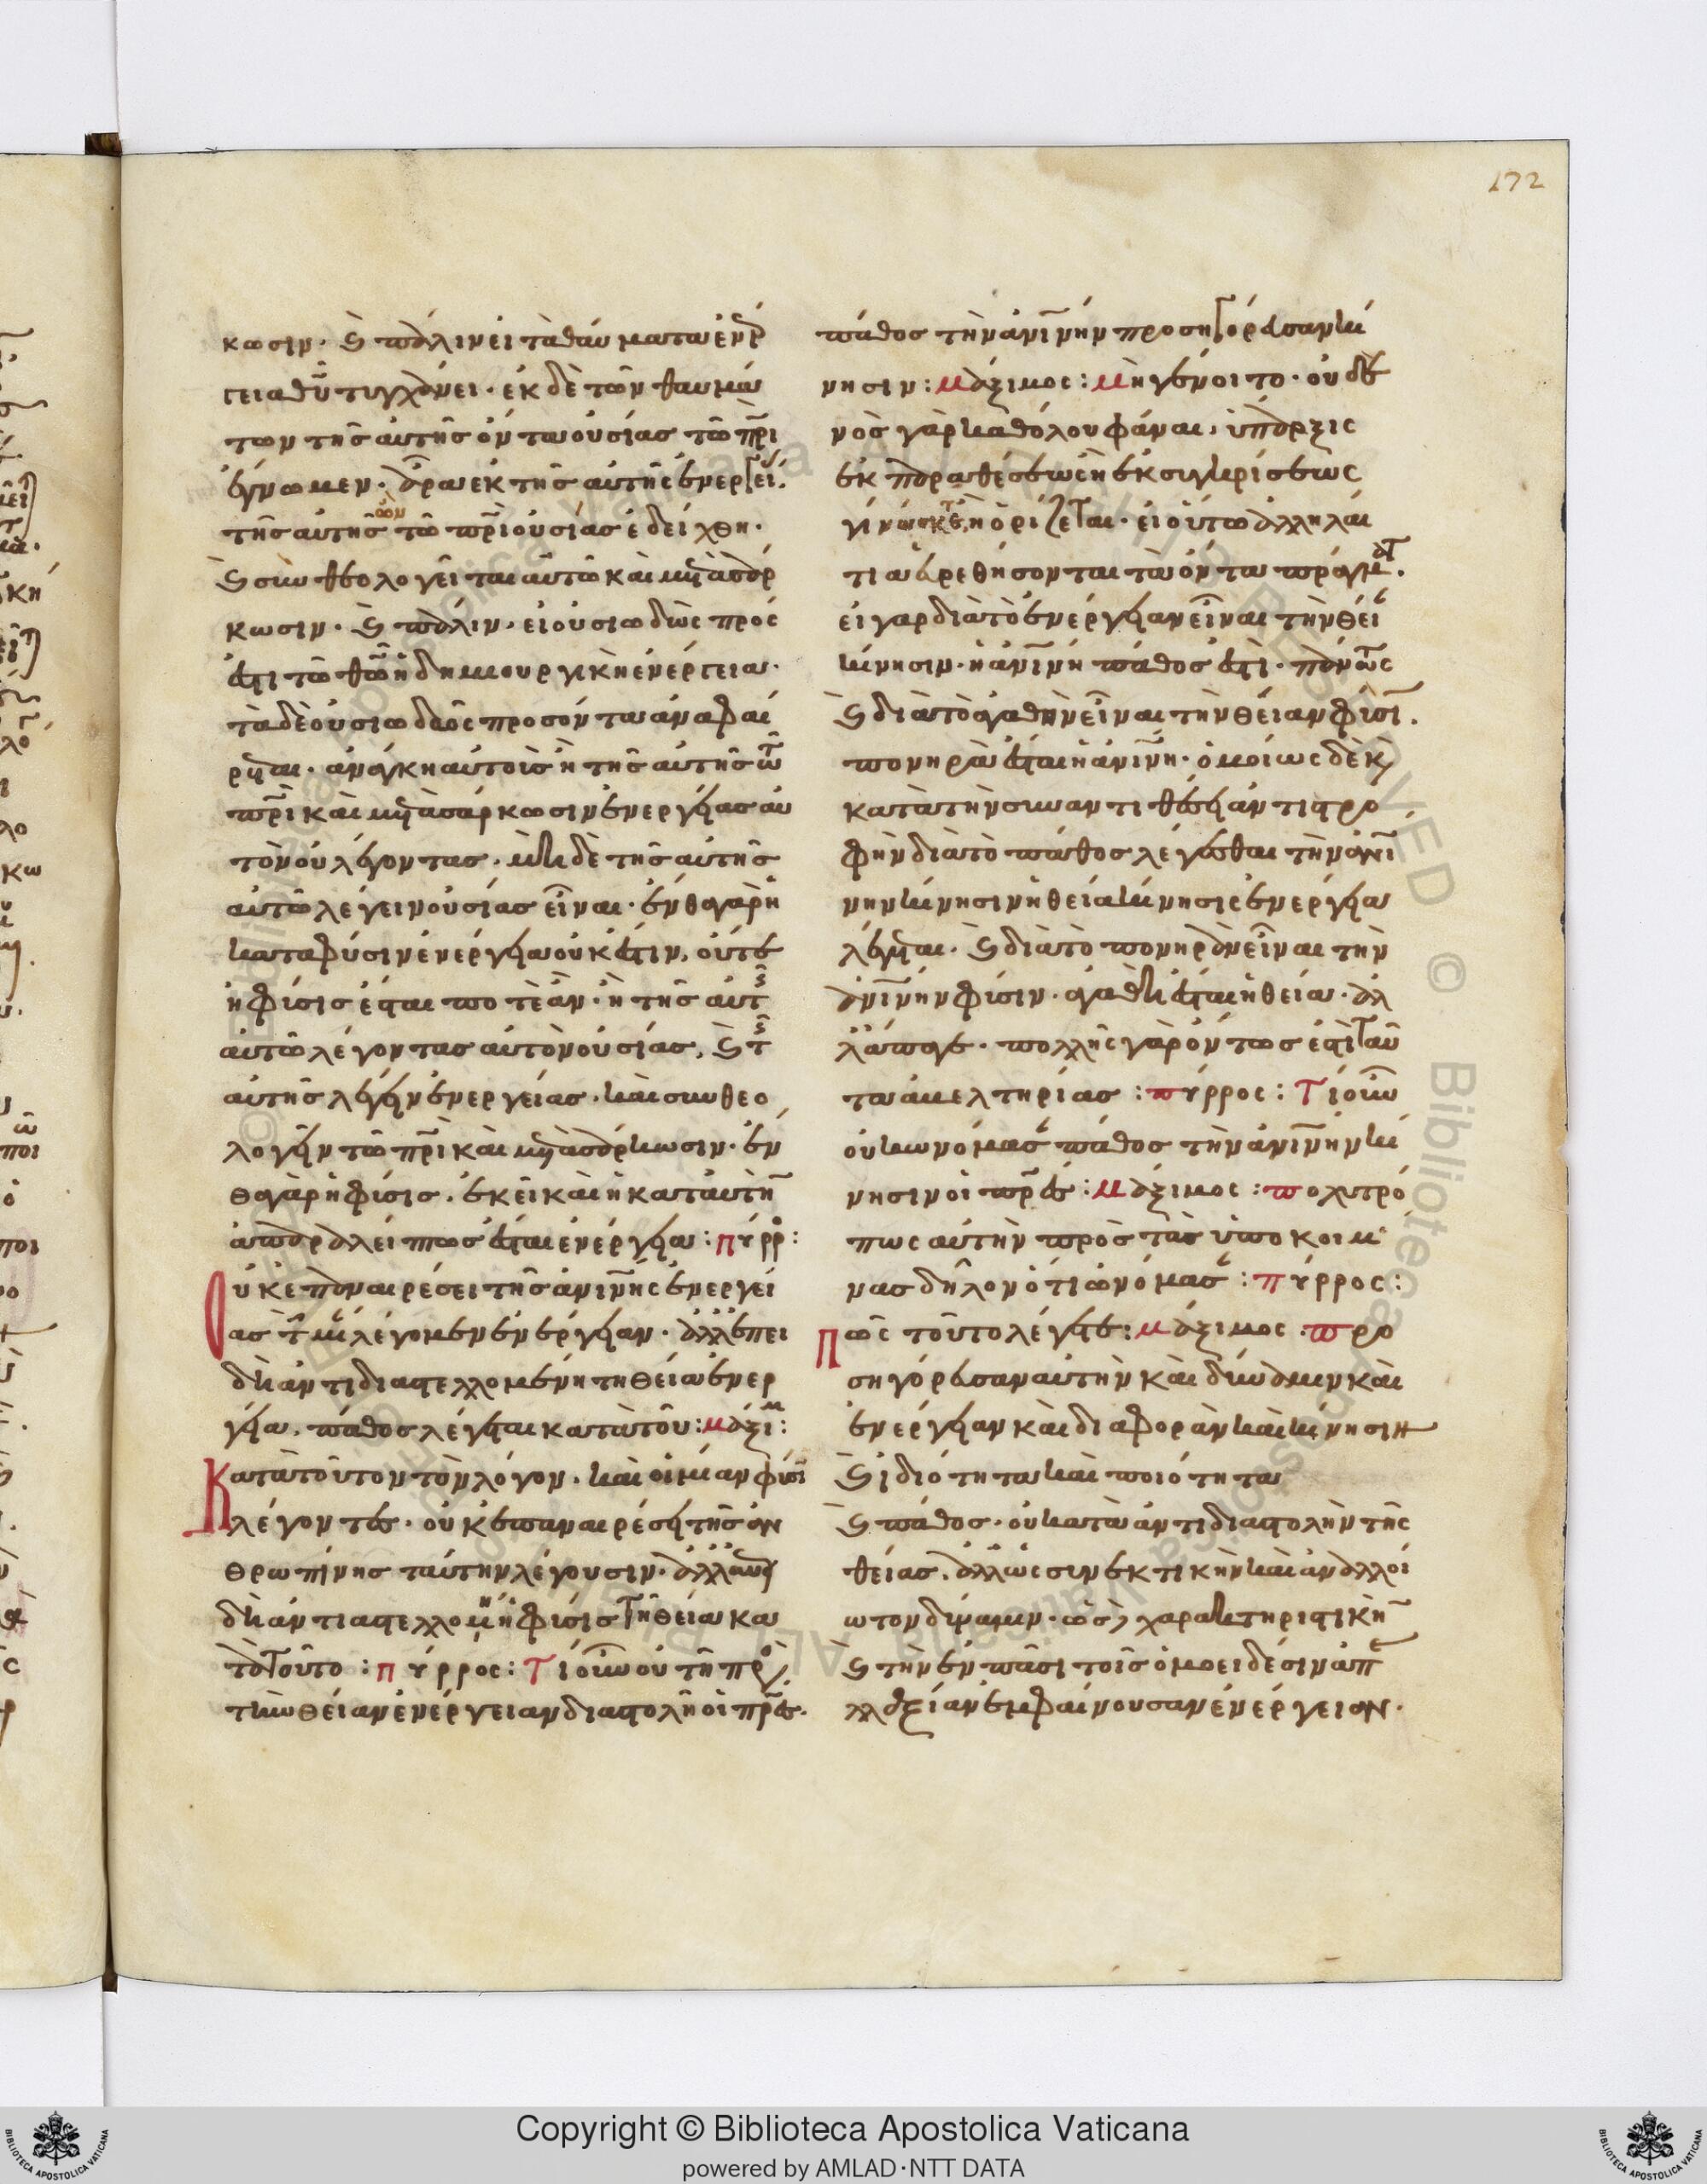 172
κωσιν· καὶ πάλιν εἰ τὰ θαύματα ἐνέρ
γεια θυ τυγχάνει· ἐκ δὲ τῶν θαυμά
των τῆς αὐτῆς ὄντα οὐσίας τῶ πρι
ἔγνωμεν· ἄρα ἐκ τῆς αὐτῆς ἐνεργεί.
τῆς αὐτῆς ὢν τῶ πρι οὐσίας ἐδείχθη·
καὶ συνθεολογεῖται αὐτῶ καὶ μετὰ σάρ
κωσιν· καὶ πάλιν· εἰ οὐσιωδῶς πρόσ
εστι τῶ θῶ ἡ δημιουργικὴ ἐνέργεια·
τὰ δὲ οὐσιωδῶς προσόντα ἀναφαί
ρεται· ἀνάγκη αὐτοῖς ἢ τῆς αὐτῆς τῶ
πρι καὶ μετὰ σάρκωσιν ἐνεργείας αὐ
τὸν οὐ λέγοντας· μὴ δὲ τῆς αὐτῆς
αὐτῶ λέγειν οὐσίας εἶναι· ἔνθα γὰρ ἡ
κατα φύσιν ἐνέργεια οὐκ ἔστιν, οὔτε
ἡ φύσις ἔσται ποτὲ ἄν· ἢ τῆς αὐτῆς
αὐτῶ λέγοντας αὐτὸν οὐσίας, καὶ τῆς
αὐτῆς λέγειν ἐνεργείας· καὶ συνθεο
λογεῖν τῶ πρι καὶ μετὰ σάρκωσιν· ἔν
θα γὰρ ἡ φύσις· ἐκεῖ καὶ ἡ κατ αὐτὴν
ἀπαραλείπτως ἔσται ἐνέργεια: πύρρο:
Οὐκ ἐπ ἀναιρέσει τῆς ἀνινης ἐνεργεί
ας τ μίαν λέγομεν ἐνέργειαν· ἀλλ ἐπει
δὴ ἀντιδιαστελλομένη τῆ θεία ἐνερ
γεία, πάθος λέγεται κατὰ τοῦ: μάξιμ:
Κατὰ τοῦτον τὸν λόγον· καὶ οἱ μίαν φύσιν
λέγοντες· οὐκ ἐπ αναιρέσει τῆς ἀν
θρωπίνης ταύτην λέγουσιν· ἀλλ ἐπει
δὴ ἀντιδιαστελλομένη ἡ φύσις τῆ θεία κα
τὰ τοῦτο: πύρρος: Τί οὖν οὐ τῆ πρὸς
τὴν θείαν ἐνέργειαν διαστολῆ οἱ πρες·
πάθος τὴν ἀνινην προσηγόρευσαν κί
νησιν: μάξιμος: μὴ γένοιτο· οὐδε
νὸς γὰρ καθόλου φάναι, ὕπαρξις
ἐκ παραθέσεως ἢ ἐκ συγκρίσεως
γινώσκεται, ἢ ὁρίζεται· εἰ οὕτω ἀλλήλαι
τια εὑρεθήσονται τὰ ὄντα πράγματ.
εἰ γαρ διὰ τὸ ἐνέργειαν εἶναι τὴν θεί
κίνησιν· ἡ ἀνινη πάθος ἐστὶ· πάντως
καὶ διὰ τὸ ἀγαθὴν εἶναι τὴν θείαν φύσιν.
πονηρὰ ἔσται ἡ ἀνινη· ὁμοίως δὲ καὶ
κατὰ τὴν συναντιθέσει ἀντιστρο
φὴν διὰ τὸ πάθος λέγεσθαι τὴν ἀνι
νην κίνησιν ἡ θεία κίνησις ἐνέργεια
λέγεται· καὶ διὰ τὸ πονηρὰν εἶναι τὴν
ἀνινην φύσιν· ἀγαθὴ ἔσται ἡ θεία· ἀλ
λ ἄπαγε· πολλῆς γὰρ ὄντως ἐστὶ ταῦ
τα ἀμελτηρίας: πύρρος: Τί οὖν
οὐκ ωνόμασαν πάθος τὴν ἀνινην κί
νησιν οἱ πρες: μάξιμος: πολυτρό
πως αὐτὴν πρὸς τὰς ὑποκειμ
νας δηλονότι ὠνόμασαν: πύρρος:
Πῶς τοῦτο λέγεις: μάξιμος· προ
σηγόρευσαν αὐτὴν καὶ δύναμιν καὶ
ἐνέργειαν καὶ διαφορὰν καὶ κίνησιν
καὶ ἰδιότητα καὶ ποιότητα
καὶ πάθος· οὐ κατὰ ἀντιδιαστολὴν τῆς
θείας, ἀλλ ὡς συνεκτικὴν καὶ ἀναλλοί
ωτον δύναμιν· ὡς χαρακτηριστικὴν
καὶ τὴν ἐν πᾶσι τοῖς ὁμοειδέσιν ἀπαρ
λλαξίαν ἐμφαίνουσαν ἐνέργειαν·
Copyright © Biblioteca Apostolica Vaticana
powered by AMLAD·NTT DATA